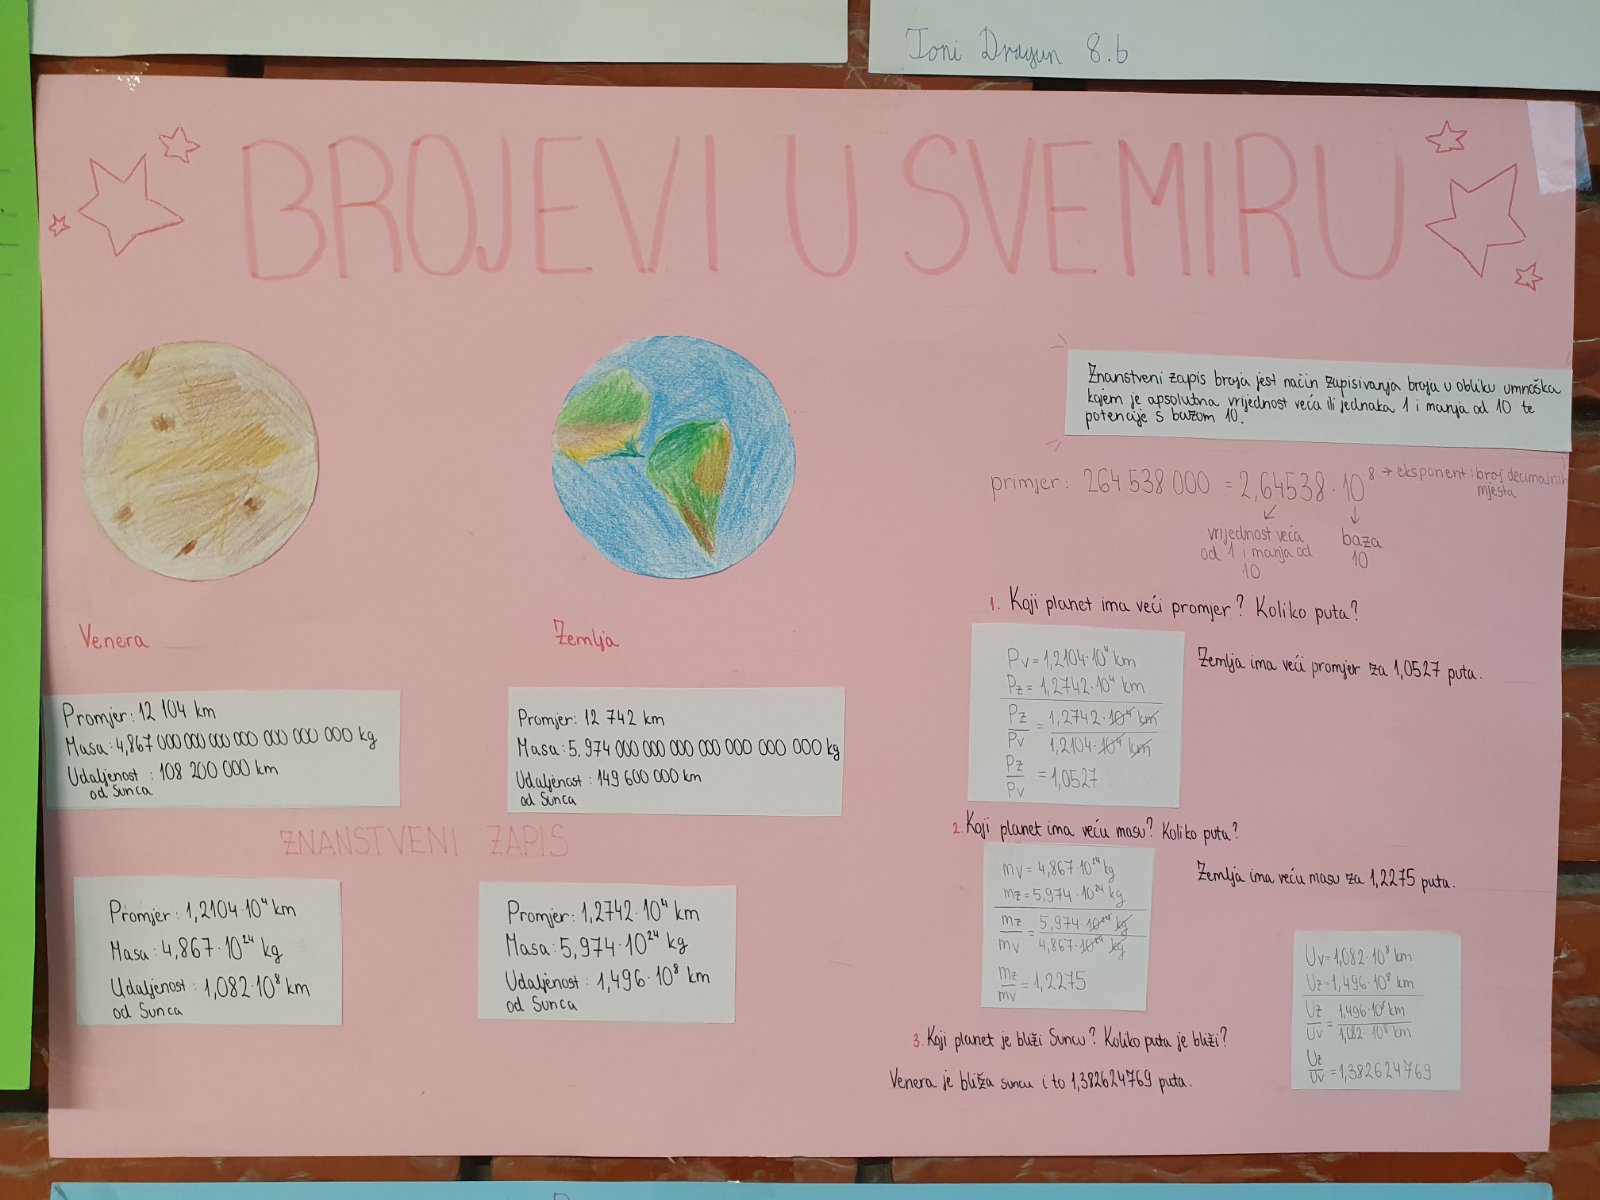 Toni Dragun 8.b
BROJEVI U SVEMIRU
Venera
Promjer: 12 104 km
Masa: 4,867 000 000 000 000 000 000 000 kg
Udaljenost : 108 200 000 km
od Sunca
Zemlja
Promjer: 12 742 km
Masa: 5.974 000 000 000 000 000 000 000 kg
Udaljenost : 149 600 000 km
od Sunca
ZNANSTVENI ZAPIS
Promjer: 1,2104·10⁴ km
Masa: 4,867·10²⁴ kg
Udaljenost : 1,082·10⁸ km
od Sunca
Promjer: 1,2742·10⁴ km
Masa: 5,974·10²⁴ kg
Udaljenost : 1,496·10⁸ km
od Sunca
Znanstveni zapis broja jest način zapisivanja broja u obliku umnoška
kojem je apsolutna vrijednost veća ili jednaka 1 i manja od 10 te
potencije s bazom 10.
primjer: 264 538 000 = 2,64538·10⁸ → eksponent: broj decimalnih
mjesta
vrijednost veća
od 1 i manja od
10
baza
10
1. Koji planet ima veći promjer? Koliko puta?
Pv = 1,2104·10⁴ km
Pz = 1,2742·10⁴ km
Pz/Pv = 1,2742·10⁴ km/1,2104·10⁴ km
Pz/Pv = 1,0527
Zemlja ima veći promjer za 1,0527 puta.
2. Koji planet ima veću masu? Koliko puta?
mv = 4,867·10²⁴ kg
mz = 5,974·10²⁴ kg
mz/mv = 5,974·10²⁴ kg/4,867·10²⁴ kg
mz/mv = 1,2275
Zemlja ima veću masu za 1,2275 puta.
3. Koji planet je bliži Suncu? Koliko puta je bliži?
Venera je bliža suncu i to 1,382624769 puta.
Uv = 1,082·10⁸ km
Uz = 1,496·10⁸ km
Uz/Uv = 1,496·10⁸ km/1,082 10⁸ km
Uz/Uv = 1,382624769